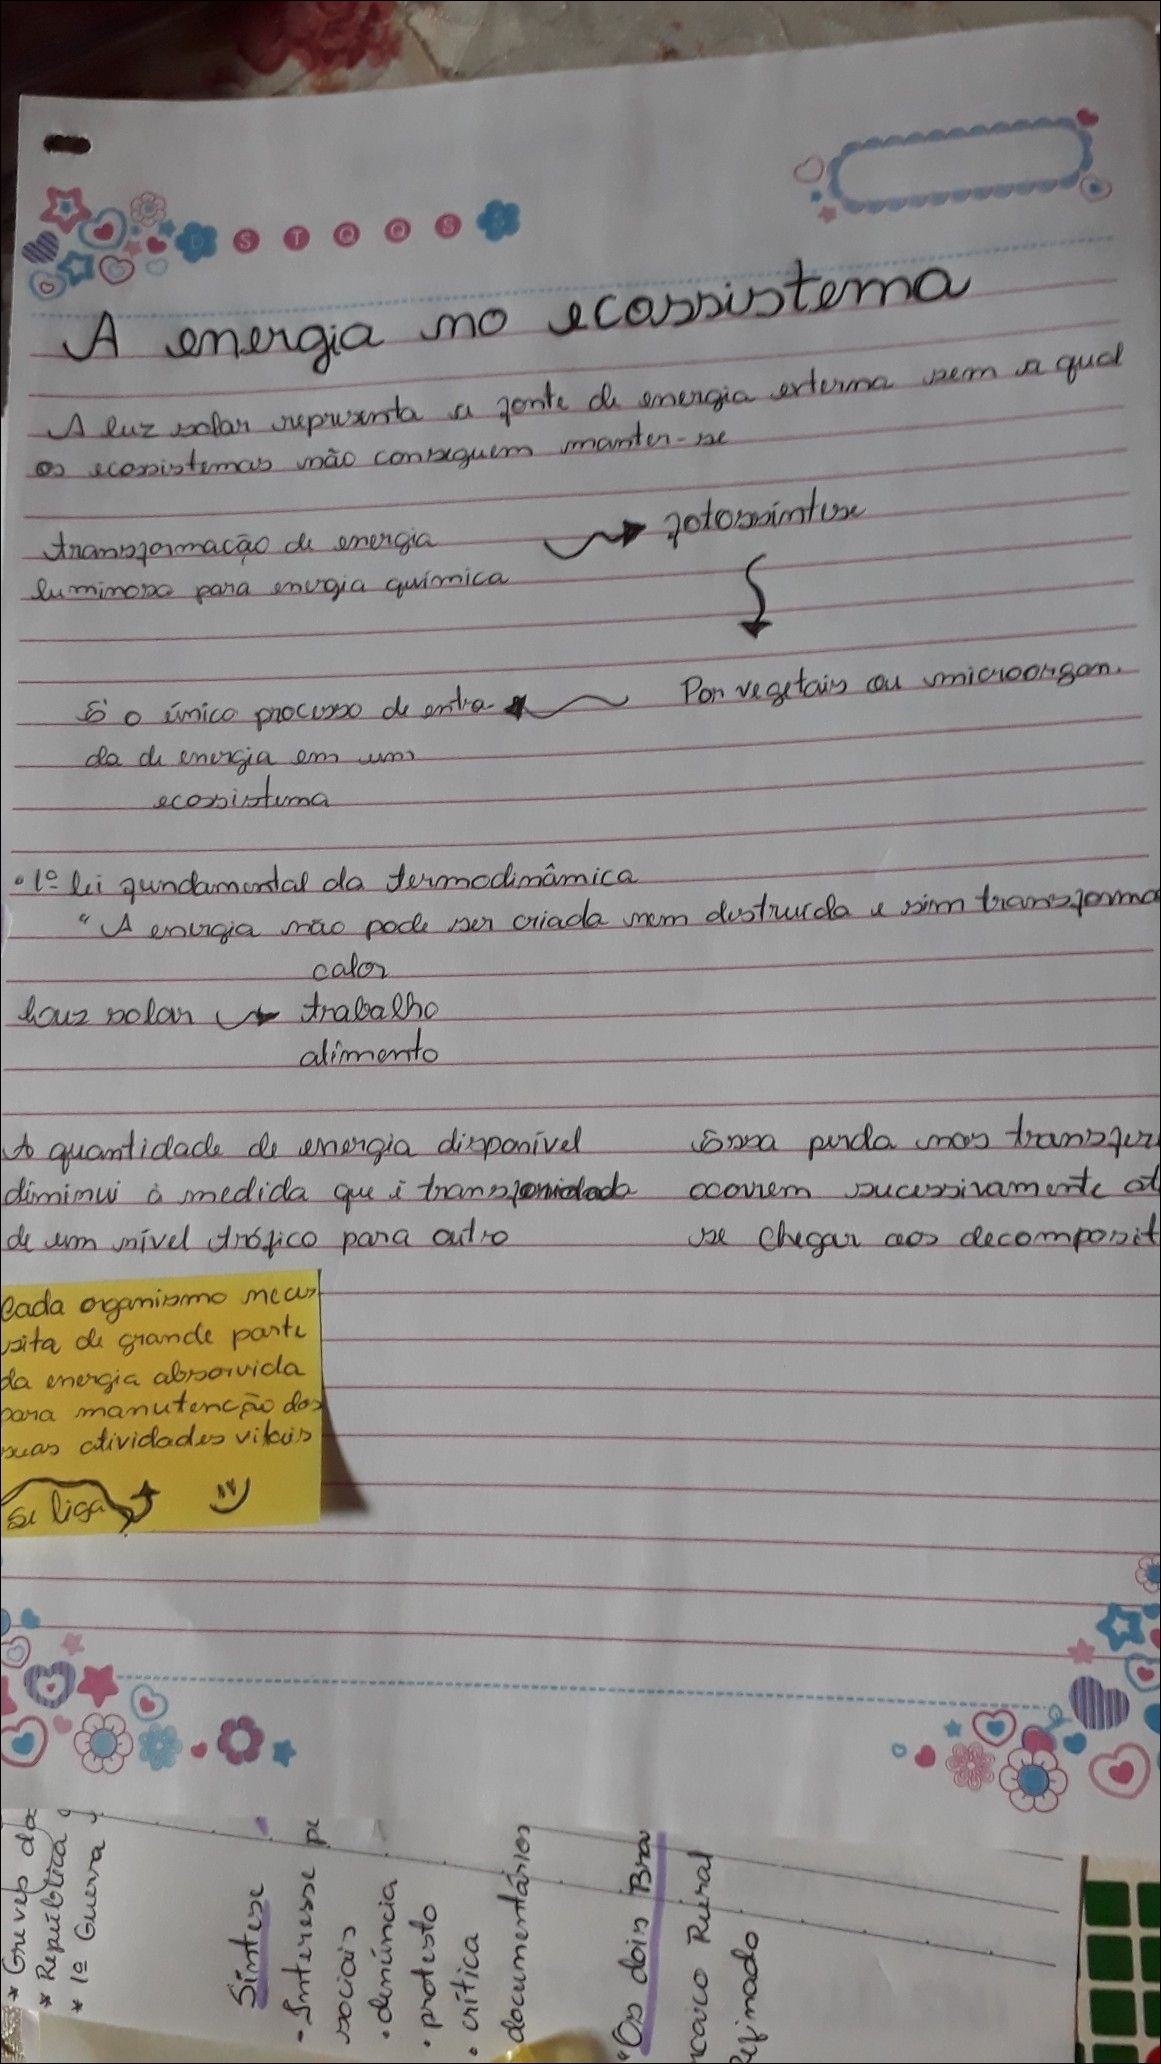 D S T Q Q S S
A energia no ecossistema
A luz solar representa a fonte de energia externa sem a qual
os ecossistemas não conseguem manter-se
transformação de energia
luminosa para energia química
fotossíntese
Por vegetais ou microorgan.
É o único processo de entra
da de energia em um
ecossistema
• 1º lei fundamental da termodinâmica
"A energia não pode ser criada nem destruída e sim transforma
calor
Luz solar trabalho
alimento
A quantidade de energia disponível
diminui à medida que é transferida
de um nível trófico para outro
Essa perda nas transfer
ocorrem sucessivamente at
se chegar aos decomposit
Cada organismo neces
sita de grande parte
da energia absorvida
para manutenção das
suas atividades vitais
Se liga
* Greves da
* República
* 1º Guerra
Síntese
- Interesse pe
sociais
• denúncia
• protesto
• crítica
documentários
"Os dois Bra
Rural
Refinado